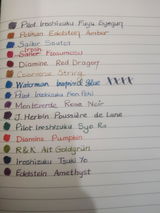 Pilot Iroshizuku Fuyu Syogun
Pelikan Edelstein Amber
Sailor Souten
Sailor Irish
Diamine Red Dragon
String
Waterman Inspired Blue XXXX
Pilot Iroshizuku Kon Peki
Monteverde Rose Noir
J. Herbin Poussière de Lune
Pilot Iroshizuku Syo Ro
Diamine Pumpkin
R&K Alt Goldgrün
Iroshizuku Tsuki Yo
Edelstein Amethyst